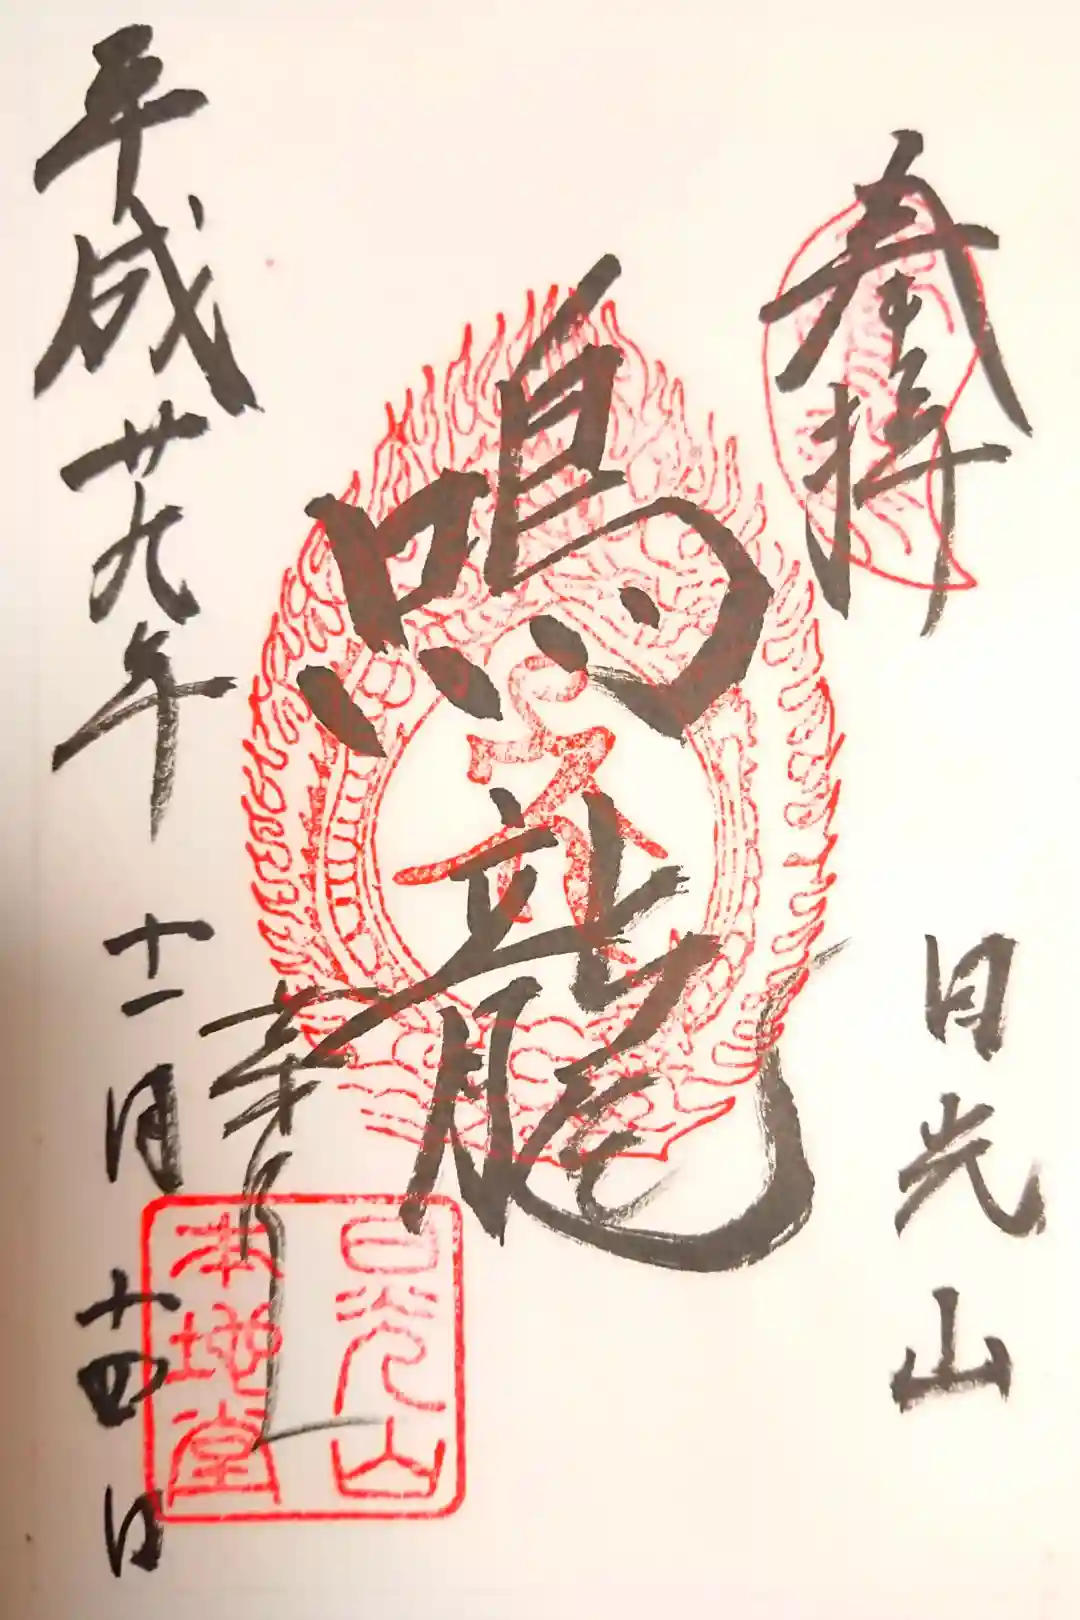 奉拝
日光山
鳴龍
平成廿九年十一月十四日
日光山
本地堂